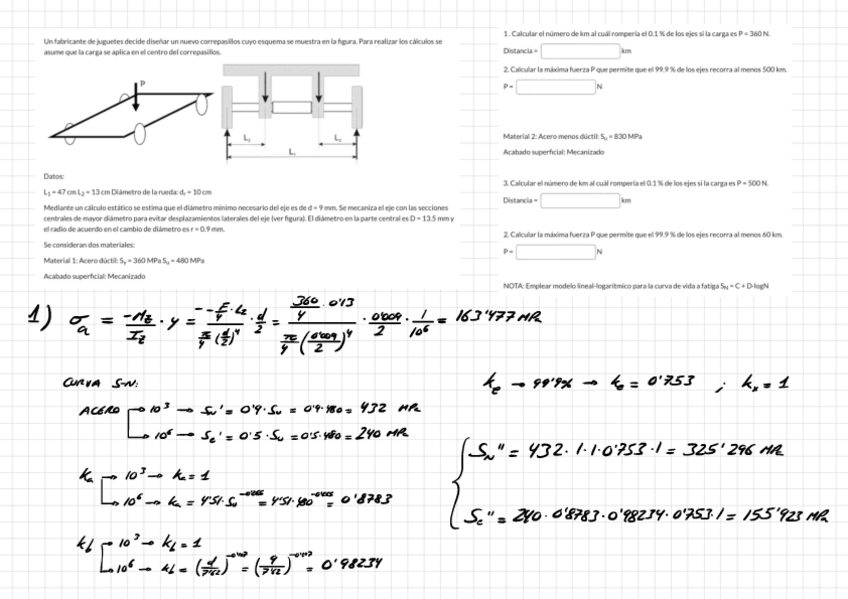 Un fabricante de juguetes decide diseñar un nuevo correpasillos cuyo esquema se muestra en la figura. Para realizar los cálculos se
asume que la carga se aplica en el centro del correpasillos.
P
L₂
L₂
L₁
Datos:
L₁ = 47 cm L₂ = 13 cm Diámetro de la rueda: dᵣ = 10 cm
Mediante un cálculo estático se estima que el diámetro mínimo necesario del eje es de d = 9 mm. Se mecaniza el eje con las secciones
centrales de mayor diámetro para evitar desplazamientos laterales del eje (ver figura). El diámetro en la parte central es D = 13.5 mm y
el radio de acuerdo en el cambio de diámetro es r = 0.9 mm.
Se consideran dos materiales:
Material 1: Acero dúctil: Sy = 360 MPa Su = 480 MPa
Acabado superficial: Mecanizado
1. Calcular el número de km al cuál rompería el 0.1 % de los ejes si la carga es P = 360 N.
Distancia = km
2. Calcular la máxima fuerza P que permite que el 99.9 % de los ejes recorra al menos 500 km.
P = N
Material 2: Acero menos dúctil: Su = 830 MPa
Acabado superficial: Mecanizado
3. Calcular el número de km al cuál rompería el 0.1 % de los ejes si la carga es P = 500 N.
Distancia = km
2. Calcular la máxima fuerza P que permite que el 99.9 % de los ejes recorra al menos 60 km.
P = N
NOTA: Emplear modelo lineal-logarítmico para la curva de vida a fatiga SN = C + D·logN
1) σa = -Mz/Iz · y = - -F/4 · L2 / π/4 (d/2)⁴ · d/2 = 360/4 · 0'13 / π/4 (0'009/2)⁴ · 0'009/2 · 1/10⁶ = 163'477 MPa
CURVA S-N:
ACERO → 10³ → Sn' = 0'9 · Su = 0'9 · 480 = 432 MPa
→ 10⁶ → Se' = 0'5 · Su = 0'5 · 480 = 240 MPa
ka → 10³ → ka = 1
→ 10⁶ → ka = 4'51 · Su^-0'265 = 4'51 · 480^-0'265 = 0'8783
kb → 10³ → kb = 1
→ 10⁶ → kb = (d/7'62)^-0'107 = (9/7'62)^-0'107 = 0'98234
ke → 99'9% → ke = 0'753 ; kx = 1
SN'' = 432 · 1 · 1 · 0'753 · 1 = 325'296 MPa
Se'' = 240 · 0'8783 · 0'98234 · 0'753 · 1 = 155'923 MPa